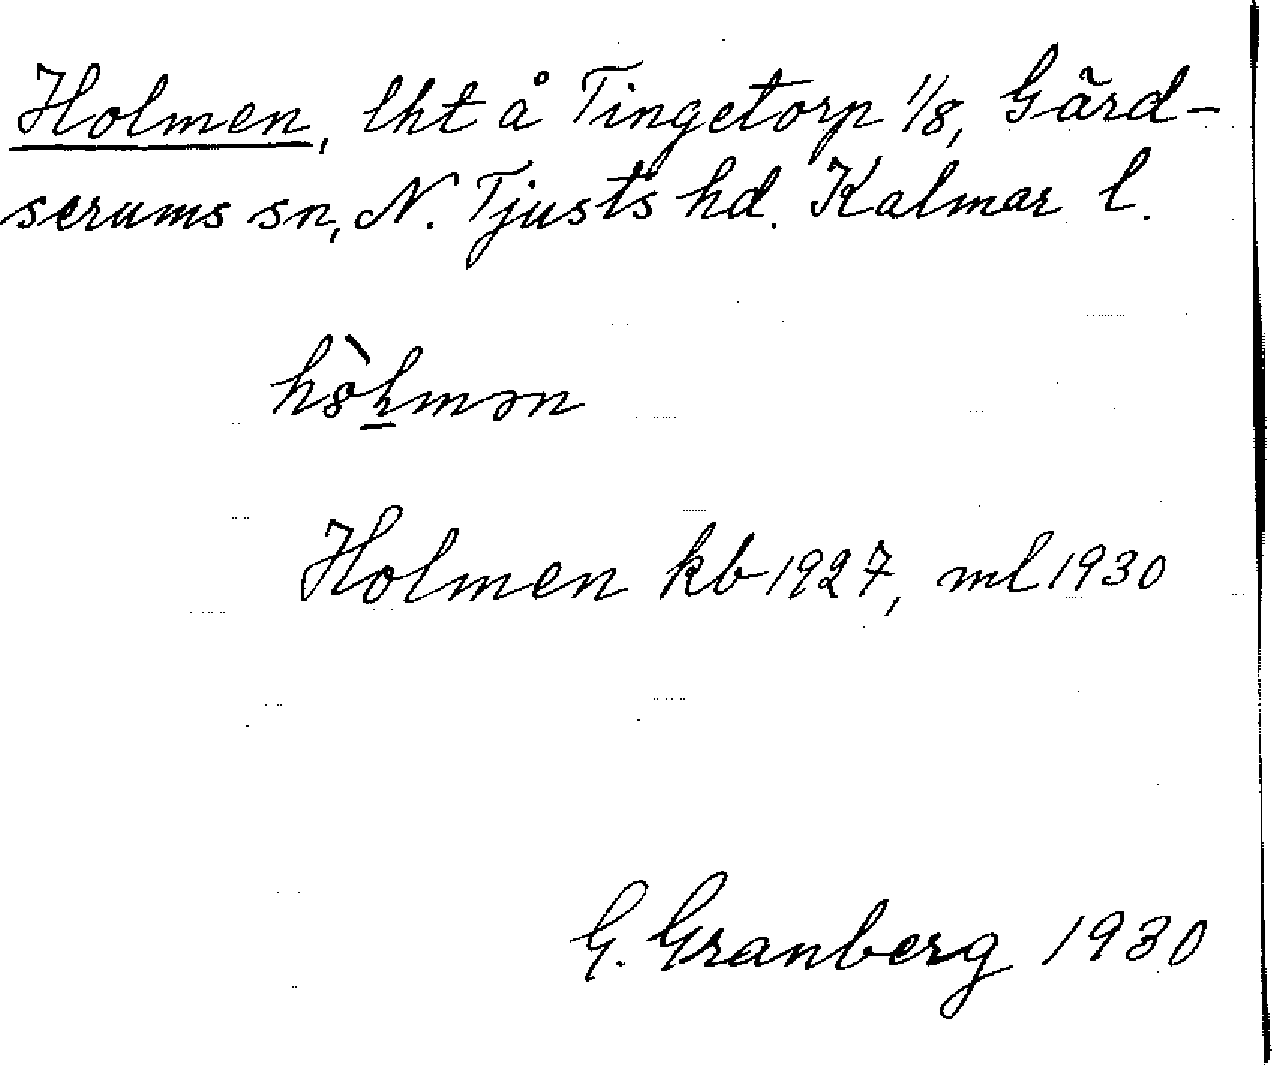 Holmen, lht å Tingetorp 1/8, Gärd-
serums sn, N. Tjusts hd. Kalmar l.
Holmen kb 1927, ml 1930
G. Granberg 1930